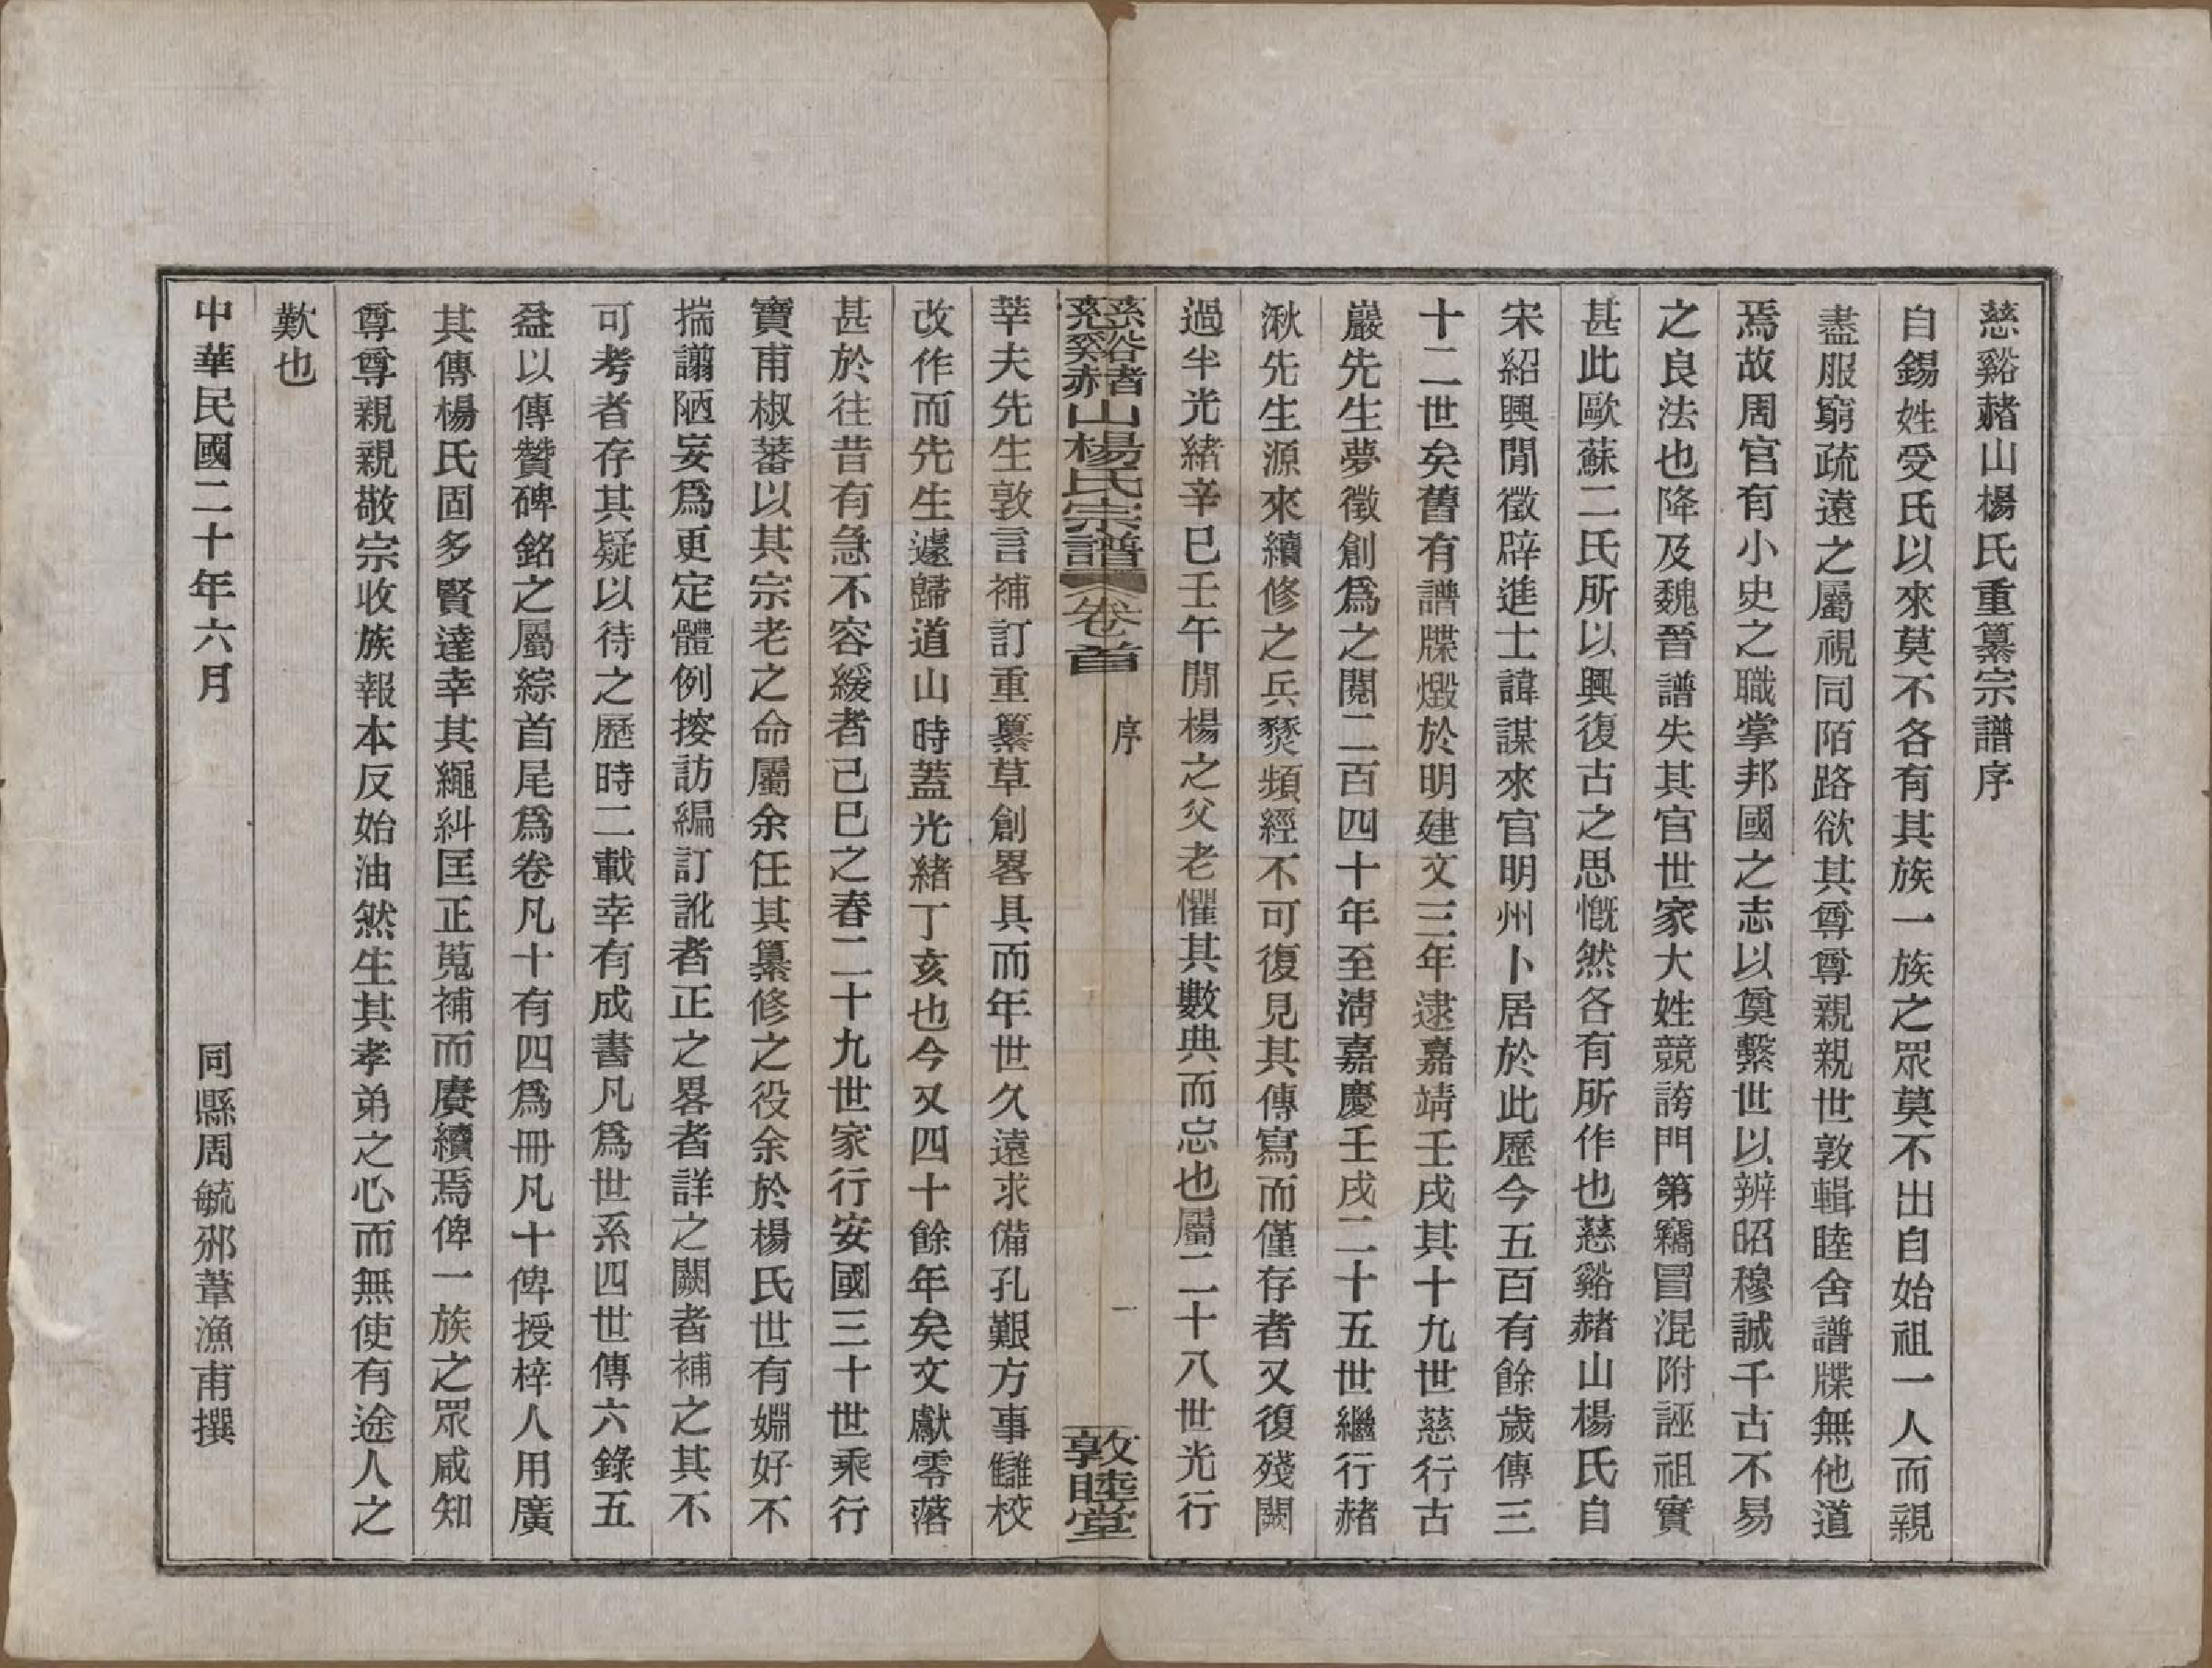 慈谿赭山楊氏重纂宗譜序
自錫姓受氏以來莫不各有其族一族之眾莫不出自始祖一人而親
盡服窮疏遠之屬視同陌路欲其尊尊親親世敦輯睦舍譜牒無他道
焉故周官有小史之職掌邦國之志以奠繫世以辨昭穆誠千古不易
之良法也降及魏晉譜失其官世家大姓競誇門第竊冒混附誣祖實
甚此歐蘇二氏所以興復古之思慨然各有所作也慈谿赭山楊氏自
宋紹興閒徵辟進士諱謀來官明州卜居於此歷今五百有餘歲傳三
十二世矣舊有譜牒燬於明建文三年逮嘉靖壬戌其十九世慈行古
巖先生夢徵創爲之閱二百四十年至淸嘉慶壬戌二十五世繼行赭
湫先生源來續修之兵燹頻經不可復見其傳寫而僅存者又復殘闕
過半光緒辛巳壬午閒楊之父老懼其數典而忘也屬二十八世光行
慈谿赭山楊氏宗譜 卷首 序 一 敦睦堂
莘夫先生敦言補訂重纂草創畧具而年世久遠求備孔艱方事讎校
改作而先生遽歸道山時蓋光緒丁亥也今又四十餘年矣文獻零落
甚於往昔有急不容緩者己巳之春二十九世家行安國三十世乘行
寶甫椒蕃以其宗老之命屬余任其纂修之役余於楊氏世有姻好不
揣譾陋妄爲更定體例按訪編訂訛者正之畧者詳之闕者補之其不
可考者存其疑以待之歷時二載幸有成書凡爲世系四世傳六錄五
益以傳贊碑銘之屬綜首尾爲卷凡十有四爲冊凡十俾授梓人用廣
其傳楊氏固多賢達幸其繩糾匡正蒐補而賡續焉俾一族之眾咸知
尊尊親親敬宗收族報本反始油然生其孝弟之心而無使有途人之
歎也
中華民國二十年六月 同縣周毓邠葦漁甫撰